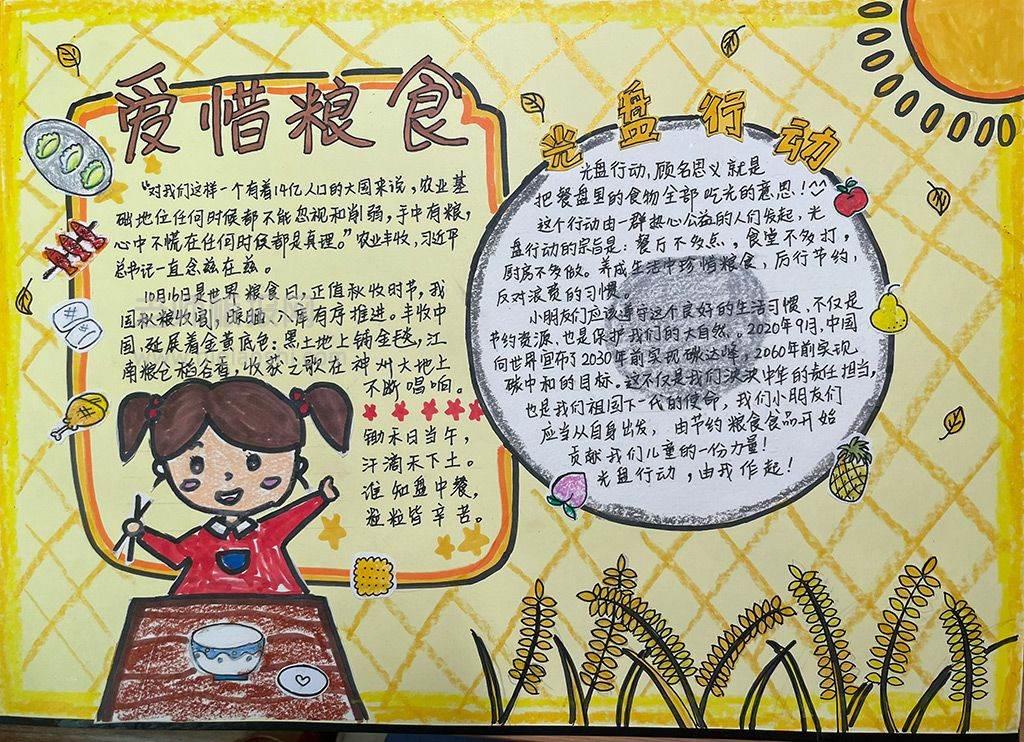 爱惜粮食
“对我们这样一个有着14亿人口的大国来说，农业基
础地位任何时候都不能忽视和削弱，手中有粮，
心中不慌在任何时候都是真理。”农业丰收，习近平
总书记一直念兹在兹。
10月16日是世界粮食日，正值秋收时节，我
国秋粮收割，
入库有序推进。丰收中
国，延展着金黄底色：黑土地上铺金毯，江
南粮仓稻谷香，收获之歌在神州大地上
不断唱响。
锄禾日当午，
汗滴禾下土。
谁知盘中餐，
粒粒皆辛苦。
光盘行动
光盘行动，顾名思义就是
把餐盘里的食物全部吃光的意思！^^
这个行动由一群热心公益的人们发起，光
盘行动的宗旨是：餐厅不多点，食堂不多打，
厨房不多做。养成生活中珍惜粮食，厉行节约，
反对浪费的习惯。
小朋友们应该遵守这个良好的生活习惯，不仅是
节约资源，也是保护我们的大自然。2020年9月，中国
向世界宣布了2030年前实现碳达峰，2060年前实现
碳中和的目标。这不仅是我们泱泱中华的责任担当，
也是我们祖国下一代的使命，我们小朋友们
应当从自身出发，由节约粮食食品开始
贡献我们儿童的一份力量！
光盘行动，由我作起！